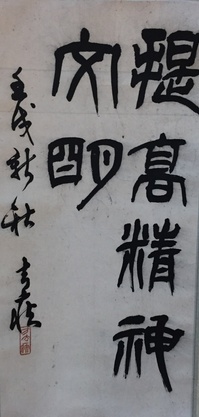 提高精神
文明
壬戌新秋